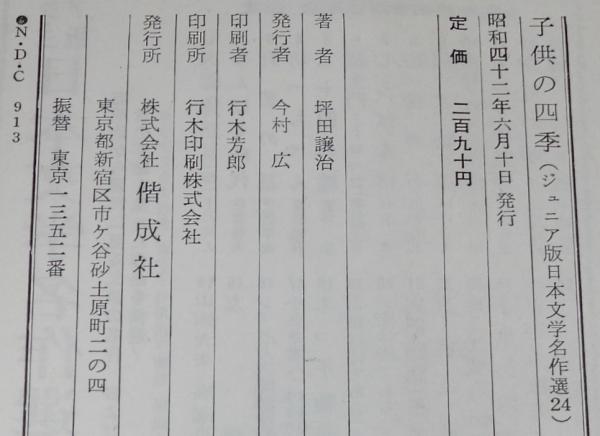 子供の四季(ジュニア版日本文学名作選24)
昭和四十二年六月十日 発行
定価 二百九十円
著者 坪田譲治
発行者 今村広
印刷者 行木芳郎
印刷所 行木印刷株式会社
発行所 株式会社 偕成社
東京都新宿区市ケ谷砂土原町二の四
振替 東京一三五二番
N・D・C 913